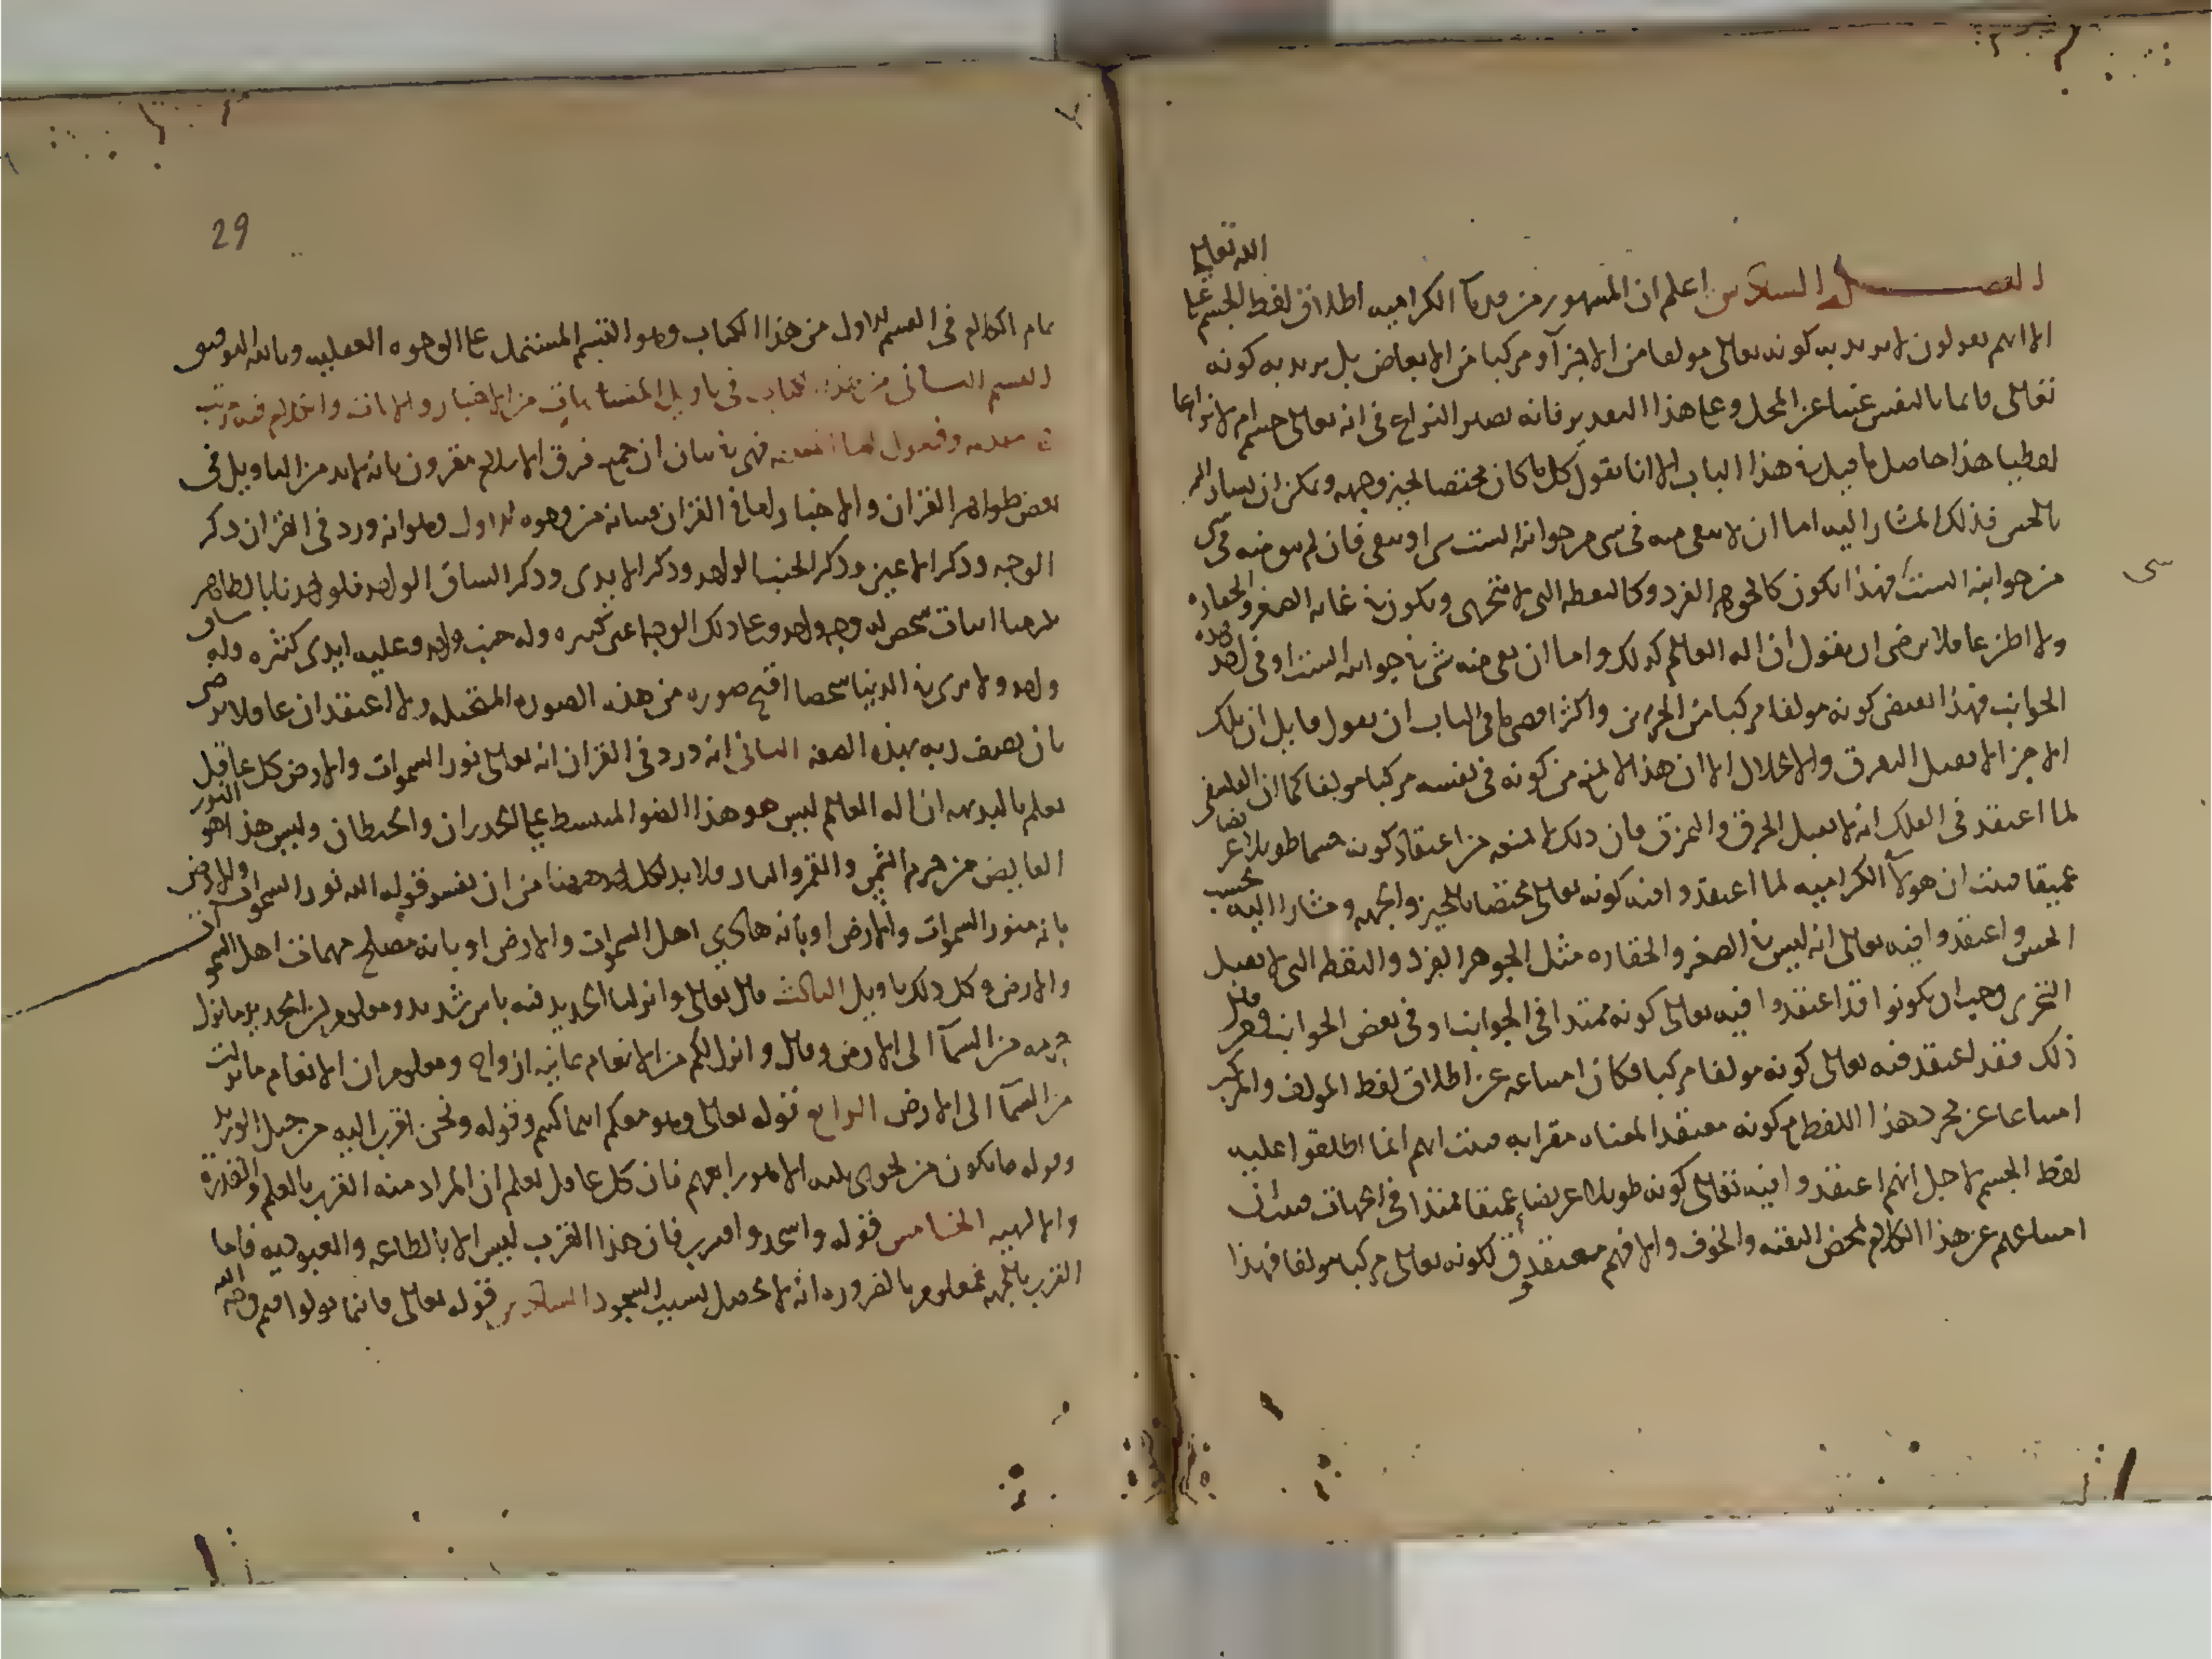 الفصل السادس اعلم ان المشهور من قدمآ الكراميه اطلاق لفظ الجسم على الله تعالى
الا انهم يقولون لا نريد به كونه تعالى مولفا من الاجزآ ومركبا من الابعاض بل نريد به كونه
تعالى قايما بالنفس غنيا عن المحل وعلى هذا التقدير فانه يصير النزاع فى انه تعالى جسم ام لا نزاعا
لفظيا هذا حاصل ما قيل فى هذا الباب الا انا نقول كل ما كان مختصا بحيز وجهه ويمكن ان يشار اليه
بالحس فذلك المشار اليه اما ان لا يبقى منه فى شى من جوانبه الست شى او يبقى فان لم يبق منه فى شى
من جوانبه الست فهذا يكون كالجوهر الفرد وكالنقطه التى لا تتجزى ويكون فى غايه الصغر والحقاره
ولا اظن عاقلا يرضى ان يقول ان اله العالم كذلك واما ان بقى منه شى فى جوانبه الست او فى احد هذه
الجوانب فهذا يقتضى كونه مولفا مركبا من الجزين واكثر اقصى ما فى الباب ان يقول قايل ان تلك
الاجزا لا تقبل التفرق والانحلال الا ان هذا لا يمنع من كونه فى نفسه مركبا مولفا كما ان الفلسفى
لما اعتقد فى الفلك انه لا يقبل الخرق والتمزق فان ذلك لا يمنعه من اعتقاد كونه جسما طويلا عريضا
عميقا فثبت ان هولآ الكراميه لما اعتقدوا فيه كونه تعالى مختصا بالحيز والجهه ومشارا اليه بحسب
الحس واعتقدوا فيه تعالى انه ليس فى الصغر والحقاره مثل الجوهر الفرد والنقطه التى لا تقبل
التجزى وجب ان يكونوا قد اعتقدوا فيه تعالى كونه ممتدا فى الجوانب او فى بعض الجوانب ومن قال
ذلك فقد اعتقد فيه تعالى كونه مولفا مركبا فكان امتناعه عن اطلاق لفظ المولف والمركب
امتناعا عن مجرد هذا اللفظ مع كونه معتقدا لمعناه مقرا به فثبت انهم انما اطلقوا عليه
لفظ الجسم لاجل انهم اعتقدوا فيه تعالى كونه طويلا عريضا عميقا ممتدا فى الجهات فثبت ان
امتناعهم عن هذا الكلام لمحض التقيه والخوف والا فهم معتقدون لكونه تعالى مركبا مولفا فهذا
شى
29
تمام الكلام فى القسم الاول من هذا الكتاب وهو القسم المشتمل على الوجوه العقليه وبالله التوفيق
القسم الثانى من هذا الكتاب فى تاويل المتشابهات من الاخبار والايات والكلام فيه مرتب
فهى فى بيان ان جميع فرق الاسلام مقرون بانه لابد من التاويل فى
بعض ظواهر القران والاخبار اما فى القران فبيانه من وجوه الاول وهو انه ورد فى القران ذكر
الوجه وذكر الاعين وذكر الجنب الواحد وذكر الايدى وذكر الساق الواحد فلو اخذنا بالظاهر
يلزمنا اثبات شخص له وجه واحد وعلى ذلك الوجه اعين كثيره وله جنب واحد وعليه ايدى كثيره وله ساق
واحد ولا نرى فى الدنيا شخصا اقبح صوره من هذه الصوره المتخيله ولا اعتقد ان عاقلا يرضى
بان يصف ربه بهذه الصفه الثانى انه ورد فى القران انه تعالى نور السموات والارض كل عاقل
يعلم بالبديهه ان اله العالم ليس هو هذا الضو المنبسط على الجدران والحيطان وليس هذا هو النور
الفايض من جرم الشمس والقمر والنار فلا بد لكل احد ههنا من ان يفسر قوله الله نور السموات والارض
بانه منور السموات والارض او بانه هادى اهل السموات والارض او بانه مصلح مهمات اهل السموات
والارض وكل ذلك تاويل الثالث قال تعالى وانزلنا الحديد فيه باس شديد ومعلوم ان الحديد ما نزل
جرمه من السمآ الى الارض وقال وانزل لكم من الانعام ثمانيه ازواج ومعلوم ان الانعام ما نزلت
من السمآ الى الارض الرابع قوله تعالى وهو معكم اينما كنتم وقوله ونحن اقرب اليه من حبل الوريد
وقوله ما يكون من نجوى ثلثه الا هو رابعهم فان كل عاقل يعلم ان المراد منه القرب بالعلم والقدرة
والالهيه الخامس قوله واسجد واقترب فان هذا القرب ليس الا بالطاعه والعبوديه فاما
القرب بالجهه فمعلوم بالضروره انه لا يحصل بسبب السجود السادس قوله تعالى فاينما تولوا فثم وجه الله